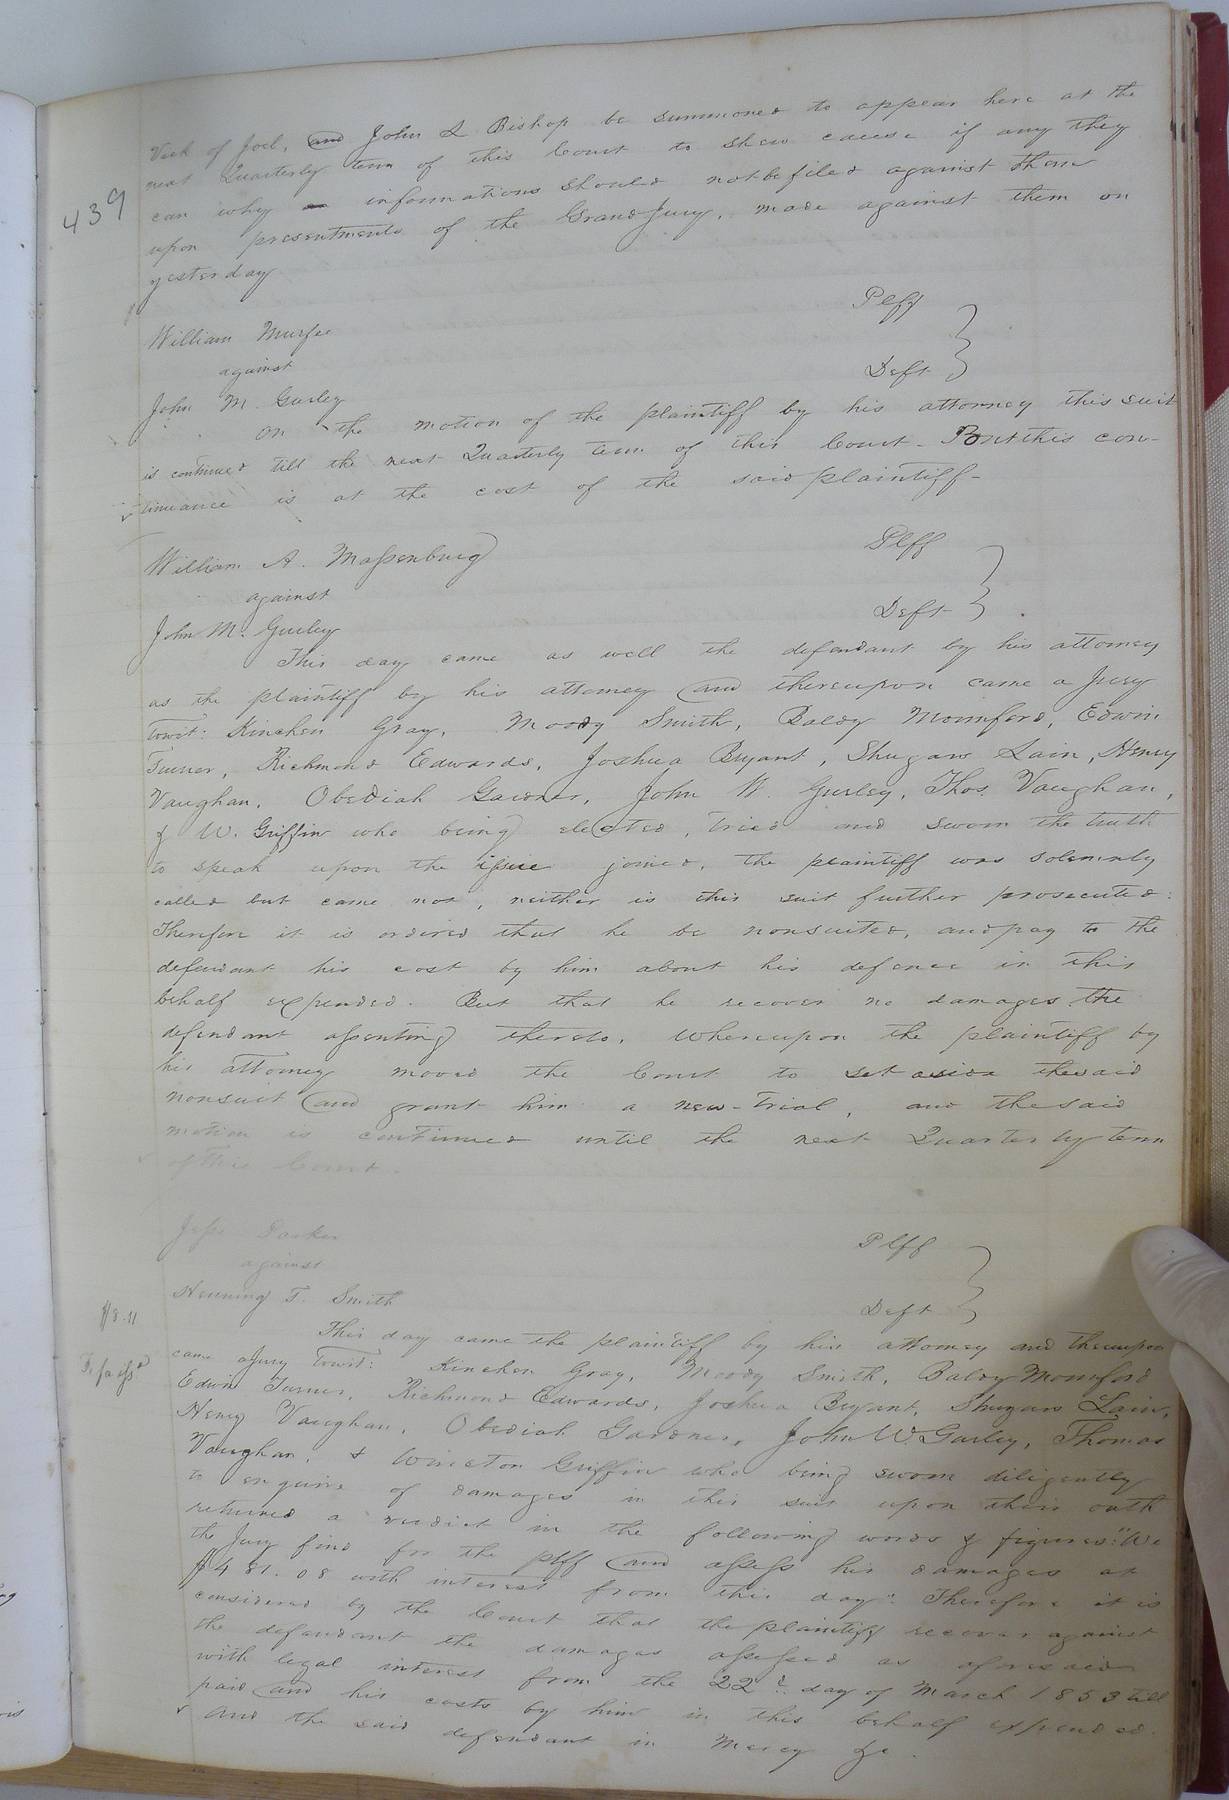 439
Vick of Joel, and John L Bishop be summoned to appear here at the
next Quarterly term of this Court to shew cause if any they
can why informations should not be filed against them
upon presentments of the Grand Jury, made against them on
yesterday
William Murfee Plff
against
John M. Gurley Deft
On the motion of the plaintiff by his attorney this suit
is continued till the next Quarterly term of this Court - But this con-
tinuance is at the cost of the said plaintiff -
William A. Massenburg Plff
against
John M. Gurley Deft
This day came as well the defendant by his attorney
as the plaintiff by his attorney and thereupon came a Jury
towit: Kinchen Gray, Moody Smith, Baldy Momford, Edwin
Turner, Richmond Edwards, Joshua Bryant, Shugars Lain, Henry
Vaughan, Obediah Gardner, John W. Gurley, Thos. Vaughan,
& W. Griffin who being elected, tried and sworn the truth
to speak upon the issue joined, the plaintiff was solemnly
called but came not, neither is this suit further prosecuted:
Therefore it is ordered that he be nonsuited, and pay to the
defendant his cost by him about his defence in this
behalf expended. But that he recover no damages the
defendant assenting thereto. Whereupon the plaintiff by
his attorney moved the Court to set aside the said
nonsuit and grant him a new-trial, and the said
motion is continued until the next Quarterly term
of this Court.
Jesse Parker Plff
against
Henning T. Smith Deft
$8.11
This day came the plaintiff by his attorney and thereupon
Fi fa issd
came a Jury towit: Kinchen Gray, Moody Smith, Baldy Momford
Edwin Turner, Richmond Edwards, Joshua Bryant, Shugars Lain,
Henry Vaughan, Obediah Gardner, John W. Gurley, Thomas
Vaughan, & Winston Griffin who being sworn diligently
to enquire of damages in this suit upon their oath
returned a verdict in the following words & figures: "We
the Jury find for the plff and assess his damages at
$481.08 with interest from this day": Therefore it is
considered by the Court that the plaintiff recover against
the defendant the damages assessed as aforesaid
with legal interest from the 22d. day of March 1853 till
paid and his costs by him in this behalf expended.
And the said defendant in Mercy &c.